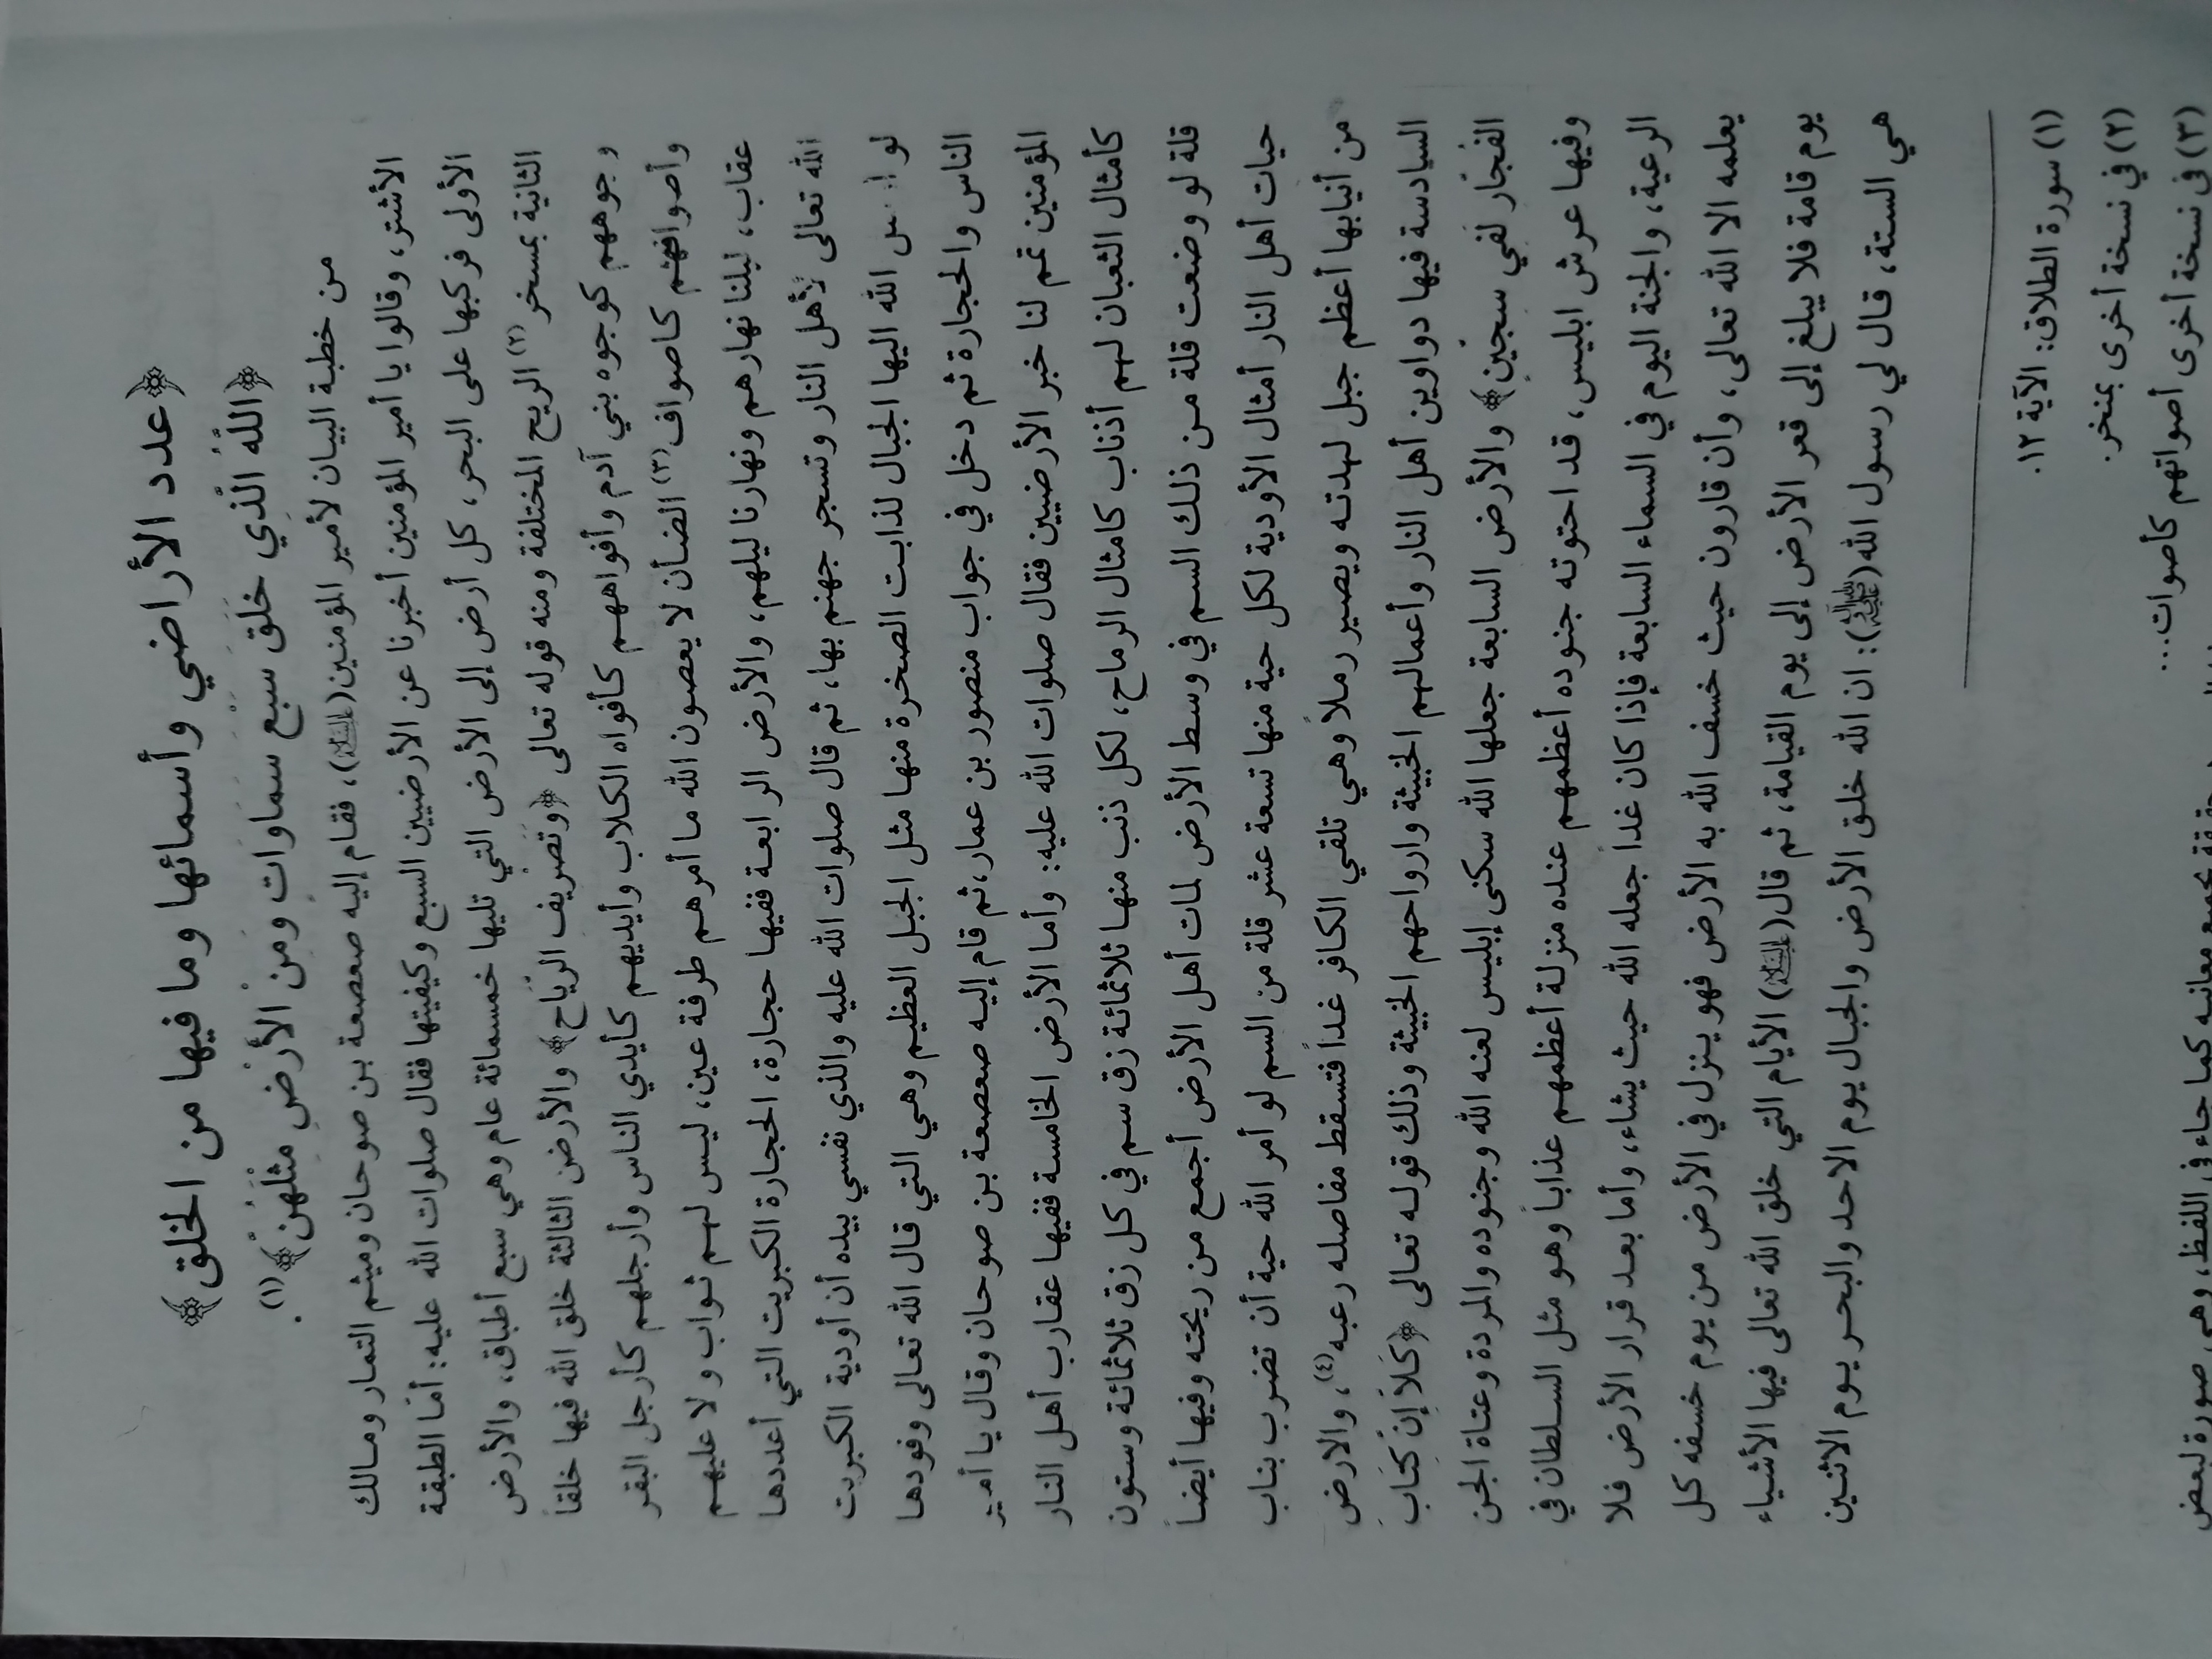 ﴿عدد الأراضي وأسمائها وما فيها من الخلق﴾
﴿اللَّهُ الَّذِي خَلَقَ سَبْعَ سَمَاوَاتٍ وَمِنَ الْأَرْضِ مِثْلَهُنَّ﴾(١).
من خطبة البيان لأمير المؤمنين(عليه السلام)، فقام إليه صعصعة بن صوحان وميثم التمار ومالك
الأشتر، وقالوا يا أمير المؤمنين أخبرنا عن الأرضيين السبع وكيفيتها فقال صلوات الله عليه: أمّا الطبقة
الأولى فركبها على البحر، كل أرض إلى الأرض التي تليها خمسمائة عام وهي سبع أطباق، والأرض
الثانية بمسخر(٢) الريح المختلفة ومنه قوله تعالى ﴿وَتَصْرِيفِ الرِّيَاحِ﴾ والأرض الثالثة خلق الله فيها خلقاً
وجوههم كوجوه بني آدم وأفواههم كأفواه الكلاب وأيديهم كأيدي الناس وأرجلهم كأرجل البقر
وأصوافهم كاصواف(٣) الضأن لا يعصون الله ما أمرهم طرفة عين، ليس لهم ثواب ولا عليهم
عقاب، ليلنا نهارهم ونهارنا ليلهم، والأرض الرابعة ففيها حجارة، الحجارة الكبريت التي أعددها
الله تعالى لأهل النار وتسجر جهنم بها، ثم قال صلوات الله عليه والذي نفسي بيده أن أودية الكبريت
لو الله اليها الجبال لذابت الصخرة منها مثل الجبل العظيم وهي التي قال الله تعالى وقودها
الناس والحجارة ثم دخل في جواب منصور بن عمار، ثم قام إليه صعصعة بن صوحان وقال يا أمير
المؤمنين تمم لنا خبر الأرضيين فقال صلوات الله عليه: وأما الأرض الخامسة ففيها عقارب أهل النار
كأمثال الثعبان لهم أذناب كامثال الرماح، لكل ذنب منها ثلاثمائة زق سم في كل زق ثلاثمائة وستون
قلة لو وضعت قلة من ذلك السم في وسط الأرض لمات أهل الأرض أجمع من ريحته وفيها أيضاً
حيات أهل النار أمثال الأودية لكل حية منها تسعة عشر قلة من السم لو أمر الله حية أن تضرب بناب
من أنيابها أعظم جبل لهدته ويصير رملاً وهي تلقي الكافر غداً فتسقط مفاصله رعبه(٤)، والارض
السادسة فيها دواوين أهل النار وأعمالهم الخبيثة وارواحهم الخبيثة وذلك قوله تعالى ﴿كَلَّا إِنَّ كِتَابَ
الفُجّارِ لَفِي سِجِّينٍ﴾ والأرض السابعة جعلها الله سكنى إبليس لعنه الله وجنوده والمردة وعتاة الجن
وفيها عرش ابليس، قد احتوته جنوده أعظمهم عنده منزلة أعظمهم عذاباً وهو مثل السلطان في
الرعية، والجنة اليوم في السماء السابعة فإذا كان غداً جعله الله حيث يشاء، وأما بعد قرار الأرض فلا
يعلمه الا الله تعالى، وأن قارون حيث خسف الله به الأرض فهو ينزل في الأرض من يوم خسفه كل
يوم قامة فلا يبلغ إلى قعر الأرض إلى يوم القيامة، ثم قال(عليه السلام) الأيام التي خلق الله تعالى فيها الأشياء
هي الستة، قال لي رسول الله(ﷺ): ان الله خلق الأرض والجبال يوم الاحد والبحر يوم الاثنين
(١) سورة الطلاق: الآية ١٢.
(٢) في نسخة أخرى بمنخر.
(٣) في نسخة أخرى أصواتهم كأصوات...
معانيه كما جاء في اللفظ، وهي صورة لبعض